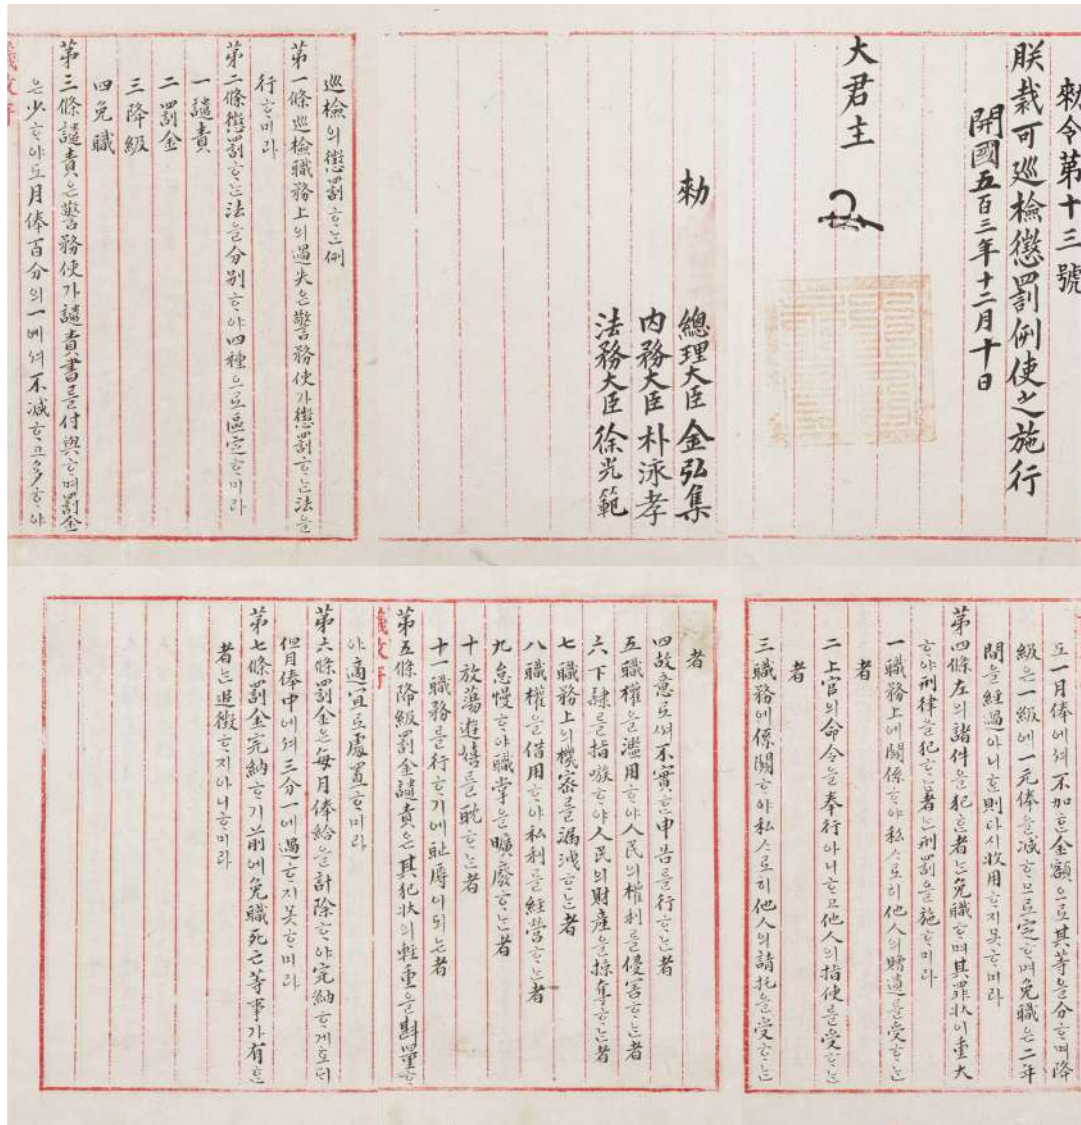 勅令第十三號
朕裁可巡檢懲罰例使之施行
開國五百三年十二月十日
大君主
勅
總理大臣金弘集
內務大臣朴泳孝
法務大臣徐光範
巡檢의懲罰ᄒᆞᄂᆞᆫ例
第一條巡檢職務上의過失은警務使가懲罰ᄒᆞᄂᆞᆫ法을
行ᄒᆞ미라
第二條懲罰ᄒᆞᄂᆞᆫ法을分別ᄒᆞ야四種으로區定ᄒᆞ미라
一譴責
二罰金
三降級
四免職
第三條譴責은警務使가譴責書를付與ᄒᆞ며罰金
은少ᄒᆞ야도月俸百分의一에셔不減ᄒᆞ고多ᄒᆞ야
도一月俸에셔不加ᄒᆞᆫ金額으로其等을分ᄒᆞ며降
級은一級에一元俸을減ᄒᆞ므로定ᄒᆞ며免職은二年
間을經過아니ᄒᆞᆫ則다시收用ᄒᆞ지못ᄒᆞ미라
第四條左의諸件을犯ᄒᆞᆫ者ᄂᆞᆫ免職ᄒᆞ며其罪狀이重大
ᄒᆞ야刑律을犯ᄒᆞᄂᆞᆫ者ᄂᆞᆫ刑罰을施ᄒᆞ미라
一職務上에關係ᄒᆞ야私ᄉᆞ로히他人의贈遺를受ᄒᆞᄂᆞᆫ
者
二上官의命令을奉行아니ᄒᆞ고他人의指使를受ᄒᆞᄂᆞᆫ
者
三職務에係關ᄒᆞ야私ᄉᆞ로히他人의請托을受ᄒᆞᄂᆞᆫ
者
四故意로셔不實ᄒᆞᆫ申告를行ᄒᆞᄂᆞᆫ者
五職權을濫用ᄒᆞ야人民의權利를侵害ᄒᆞᄂᆞᆫ者
六下隷를指嗾ᄒᆞ야人民의財產을掠奪ᄒᆞᄂᆞᆫ者
七職務上의機密를漏洩ᄒᆞᄂᆞᆫ者
八職權을借用ᄒᆞ야私利를經營ᄒᆞᄂᆞᆫ者
九怠慢ᄒᆞ야職掌을曠廢ᄒᆞᄂᆞᆫ者
十放蕩遊嬉를耽ᄒᆞᄂᆞᆫ者
十一職務를行ᄒᆞ기에耻辱이되ᄂᆞᆫ者
第五條降級罰金譴責은其犯狀의輕重을斟量ᄒᆞ
야適宜로處置ᄒᆞ미라
第六條罰金은每月俸給을計除ᄒᆞ야完納ᄒᆞ게호ᄃᆡ
但月俸中에셔三分一에過ᄒᆞ지못ᄒᆞ미라
第七條罰金完納ᄒᆞ기前에免職死亡等事가有ᄒᆞᆫ
者ᄂᆞᆫ追徵ᄒᆞ지아니ᄒᆞ미라